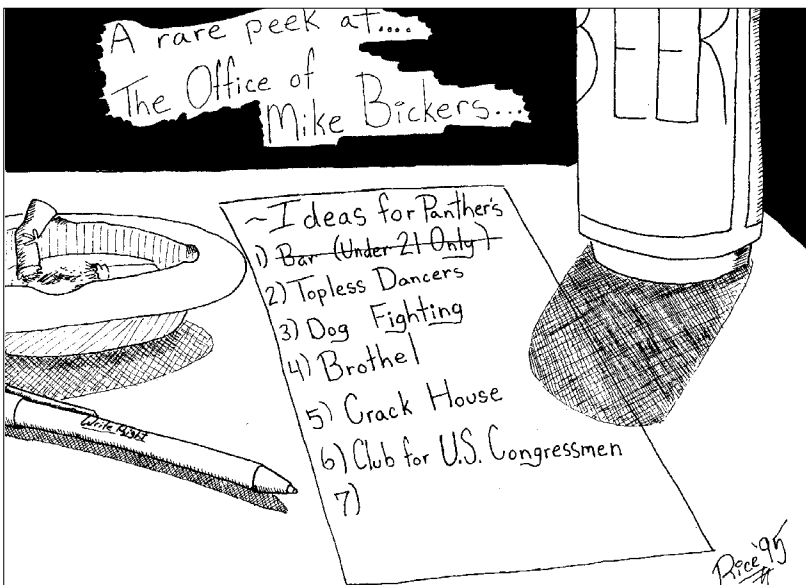 A rare peek at....
The Office of
Mike Bickers...
BEER
~Ideas for Panther's
1) Bar (Under 21 Only)
2) Topless Dancers
3) Dog Fighting
4) Brothel
5) Crack House
6) Club for U.S. Congressmen
7)
Write Right
Rice '95